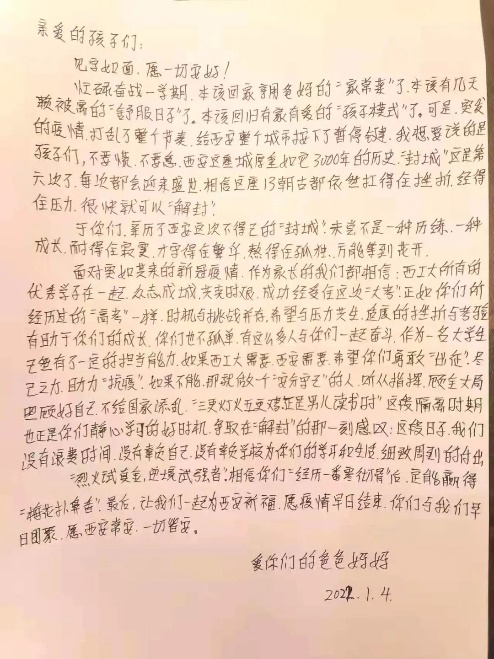 亲爱的孩子们：
见字如面，愿一切安好！
忙碌奋战一学期，本该回家享用爸妈的“家常菜”了，本该有几天
赖被窝的“舒服日子”了，本该回归有家有爱的“孩子模式”了。可是，突发
的疫情，打乱了整个节奏，给西安整个城市按下了暂停键，我想要说的是
孩子们，不要慌，不要急，西安这座城厚重如它3000年的历史，“封城”这是第
六次了，每次都会迎来盛世，相信这座13朝古都依然扛得住挫折，经得
住压力，很快就可以“解封”。
于你们，亲历了西安这次不得已的“封城”，未尝不是一种历练，一种
成长，耐得住寂寞，才守得住繁华，熬得住孤独，方能等到花开。
面对突如其来的新冠疫情，作为家长的我们都相信：西工大所有的
优秀学子在一起，众志成城，共克时艰，成功经受住这次“大考”。正如你们所
经历过的“高考”一样，时机与挑战并存，希望与压力共生，适度的挫折与考验
有助于你们的成长，你们也不孤单，有这么多人与你们一起奋斗，作为一名大学生
已经有了一定的担当能力，如果西工大需要，西安需要，希望你们勇敢“出征”，尽
己之力，助力“抗疫”，如果不能，那就做一个“安分守己”的人，听从指挥，顾全大局
照顾好自己，不给国家添乱，“三更灯火五更鸡，正是男儿读书时”这段隔离时期
也正是你们静心学习的好时机，争取在“解封”的那一刻感叹：这段日子，我们
没有浪费时间，没有辜负自己，没有辜负学校为你们的学习和生活细致周到的付出
“烈火试真金，逆境试强者”，相信你们“经历一番寒彻骨”后，定能赢得
“梅花扑鼻香”，最后，让我们一起为西安祈福，愿疫情早日结束，你们与我们早
日团聚，愿西安常安，一切皆安。
爱你们的爸爸妈妈
2022.1.4.